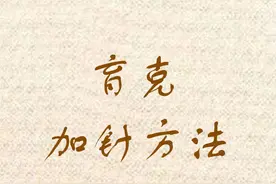 育克
加针方法